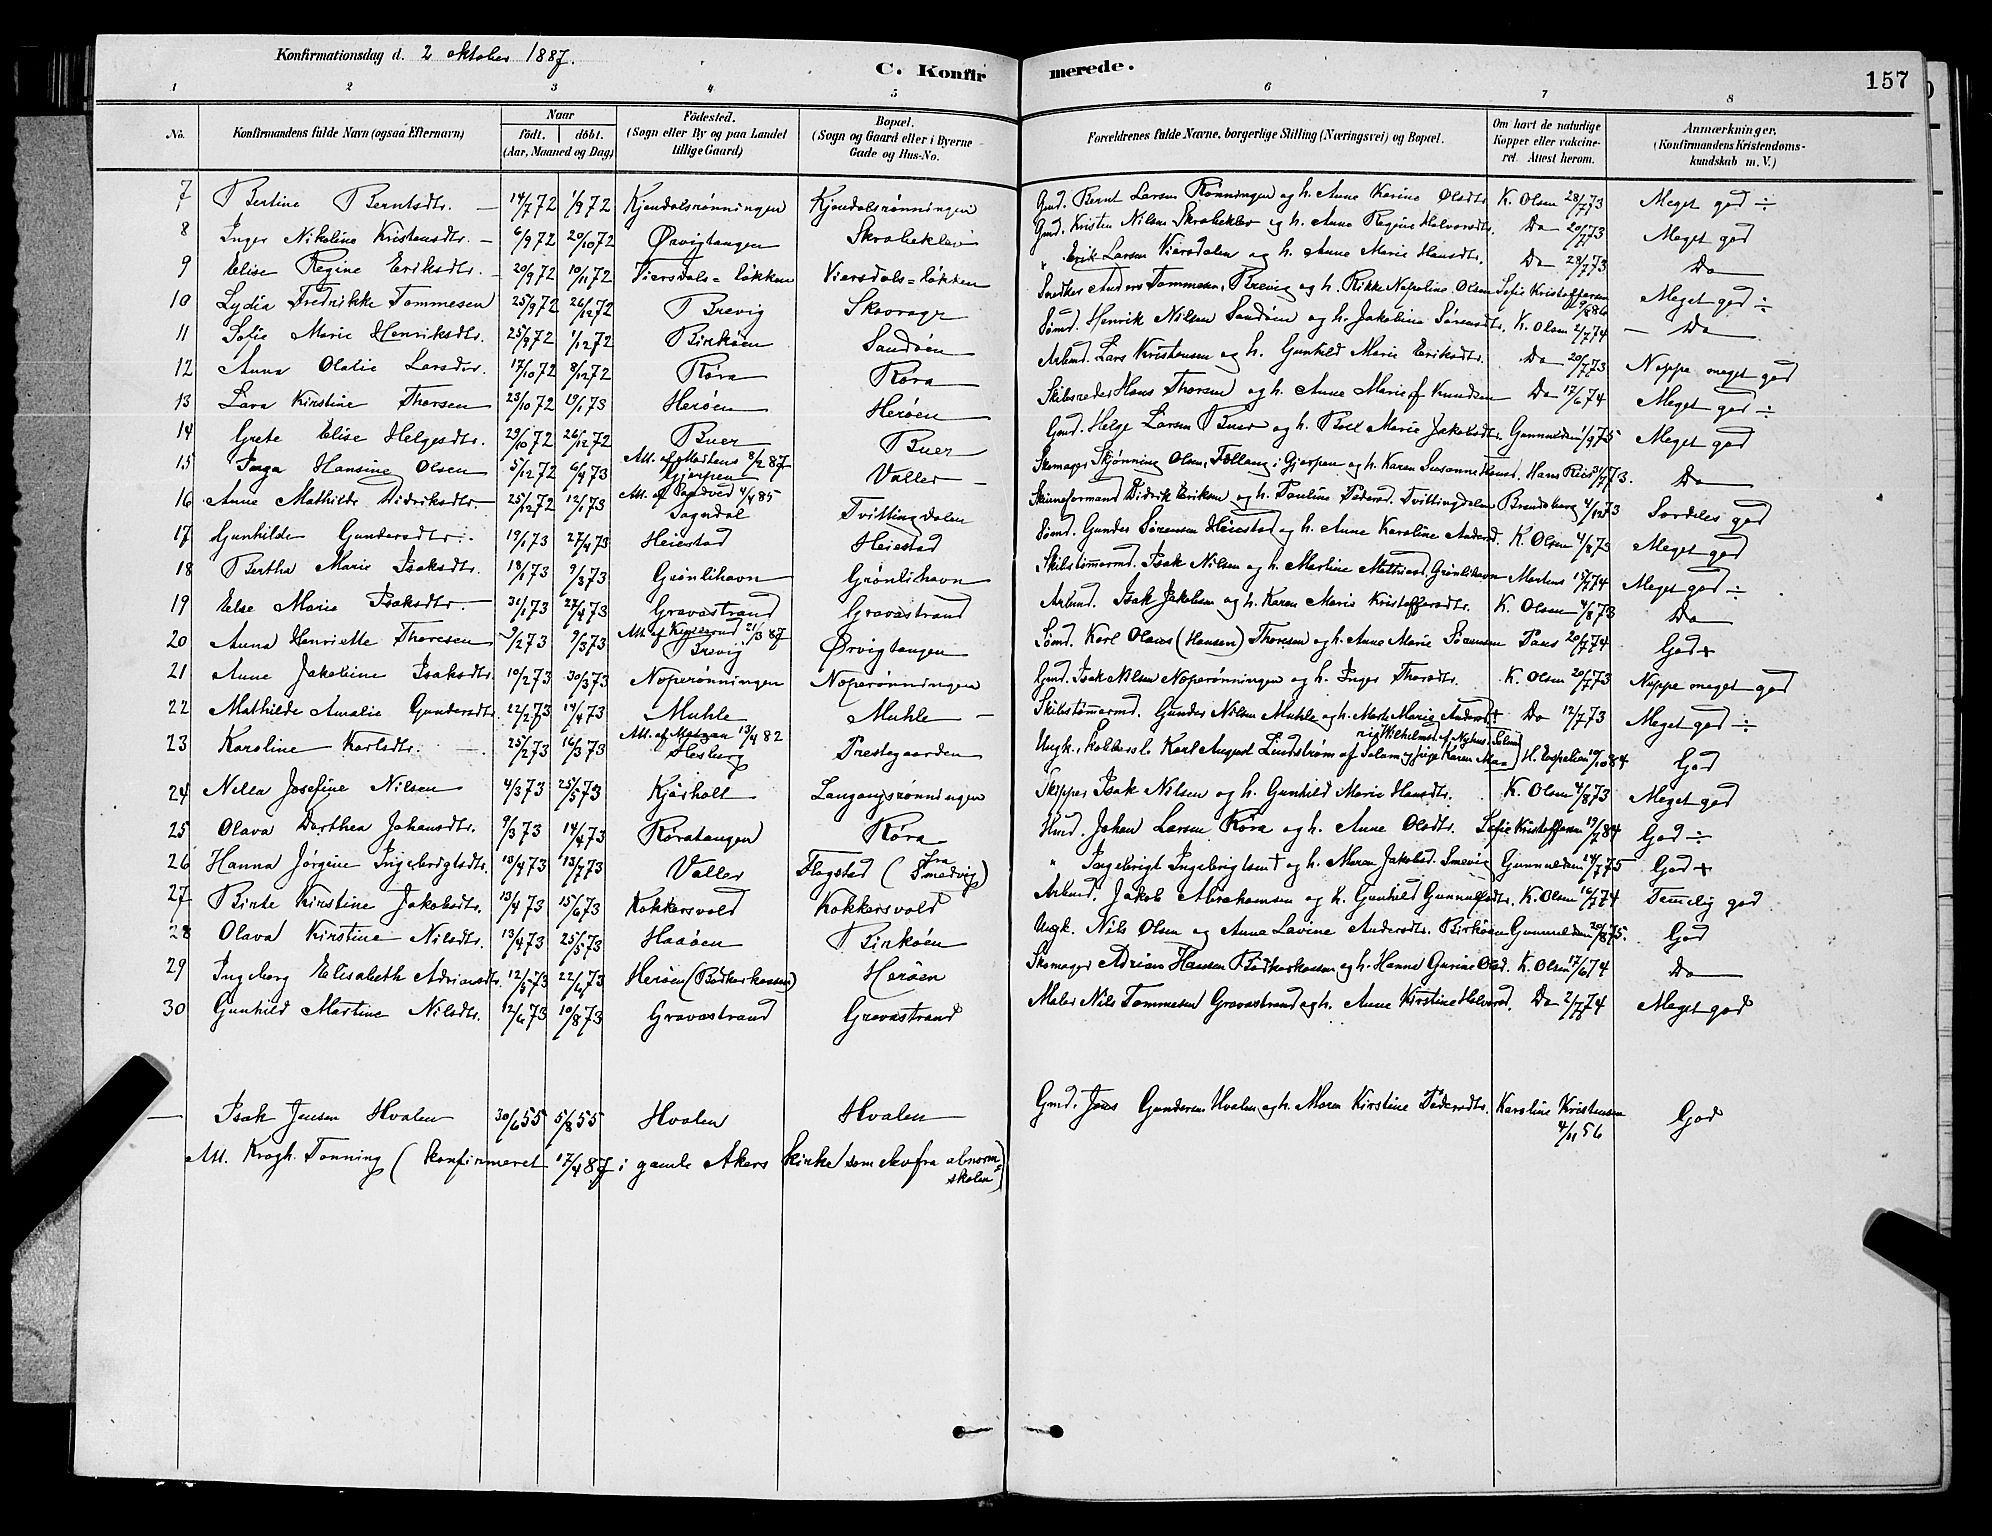 Konfirmationsdag d. 2 oktober 1887.
C. Konfirmerede.
157
1 2 3 4 5 6 7 8
No. Konfirmandens fulde Navn (ogsaa Efternavn) Naar født. døbt. (Aar, Maaned og Dag) Fødested. (Sogn eller By og paa Landet tillige Gaard) Bopæl. (Sogn og Gaard eller i Byerne Gade og Hus-No. Forældrenes fulde Navne, borgerlige Stilling (Næringsvei) og Bopæl. Om havt de naturlige Kopper eller vakcineret. Attest herom. Anmærkninger. (Konfirmandens Kristendomskundskab m. V.)
7 Bertine Berntsdtr. 14/7 72 1/9 72 Kjendalsrønningen Kjendalsrønningen Gmd. Bernt Larsen Rønningen og h. Anne Karine Olsdtr. K. Olsen 28/7 73 Meget god ÷
8 Inger Nikoline Kristensdtr. 6/9 72 20/10 72 Ørvigtangen Skrobeklev Gmd. Kristen Nilsen Skrobeklev og h. Anne Regine Halvorsdtr. Do 20/7 73 Meget god
9 Elise Regine Eriksdtr. 20/9 72 10/11 72 Viersdals=løkken Viersdals=løkken " Erik Larsen Viersdalen og h. Anne Marie Hansdtr. Do 28/7 73 Do
10 Lydia Fredrikke Tommesen 25/9 72 26/12 72 Brevig Skavrager Snedker Anders Tommesen, Brevig og h. Rikke Nepoline Olsen Sofie Kristoffersen 9/5 86 Meget god ÷
11 Sofie Marie Henriksdtr. 25/9 72 1/12 72 Birkøen Sandøen Sømd. Henrik Nilsen Sandøen og h. Jakobine Sørensdtr. K. Olsen 2/7 74 Do
12 Anna Olalie Larsdtr. 17/10 72 8/12 72 Røra Røra Arbmd. Lars Kristensen og h. Gunhild Marie Eriksdtr. Do 20/7 73 Neppe meget god
13 Lara Kirstine Thorsen 23/10 72 19/1 73 Herøen Herøen Skibsreder Hans Thorsen og h. Anne Marie f Knudsen Do 17/6 74 Meget god ÷
14 Grete Elise Helgesdtr. 29/10 72 26/12 72 Buer Buer Gmd. Helge Larsen Buer og h. Boel Marie Jakobsdtr. Gunnuldsen 1/9 75 Meget god
15 Inga Hansine Olsen 5/12 72 6/4 73 Att. af Martens 8/2 87 Gjerpen Valler Skomager Skjønning Olsen, Follang i Gjerpen og h. Karen Susanne Hansd. Hans Riis 31/7 73. Do
16 Anne Mathilde Didriksdtr. 25/12 72 12/1 73 Att. af Sandved 4/4 85 Sogndal Tvittingdalen Skinneformand Didrik Eriksen og h. Pauline Pedersd. Tvittingdalen Brandsberg 4/12 73 Særdeles god
17 Gunhilde Gundersdtr. 19/1 73 27/4 73 Heiestad Heiestad Sømd. Gunder Sørensen Heiestad og h. Anne Karoline Andersd. K. Olsen 4/8 73 Meget god
18 Bertha Marie Isaksdtr. 19/1 73 9/3 73 Grønlihavn Grønlihavn Skibstømmermd. Isak Nilsen og h. Martine Mathiasd. Grønlihavn Martens 15/7 74 Meget god ÷
19 Else Marie Isaksdtr. 31/1 73 27/4 73 Gravastrand Gravastrand Arbmd. Isak Jakobsen og h. Karen Marie Kristoffersdtr. K. Olsen 4/8 73 Do
20 Anna Henriette Thoresen 9/2 73 9/3 73 Att. af Kinserud 21/3 87 Brevig Ørvigtangen Sømd. Karl Olaves (Hansen) Thoresen og h. Anne Marie Sørensen Paus 20/7 74 God +
21 Anne Jakobine Isaksdtr. 10/2 73 30/3 73 Noperønningen Noperønningen Gmd. Isak Nilsen Noperønningen og h. Inger Thorsdtr. K. Olsen 20/7 73 Neppe meget god
22 Mathilde Amalie Gundersdtr. 22/2 73 14/4 73 Muhle Muhle Skibstømmermd. Gunder Nilsen Muhle og h. Marte Marie Andersd. + Do 12/7 73 Meget god ÷
23 Karoline Karlsdtr. 25/2 73 16/3 73 Att. af Matzau 13/4 82 Hesberg Prestegaarden Ungk. skibbersk. Karl August Lindstrøm af Solum og pige Karen Maa- rie Wilhelmsd. af Nyhus, Solum H. Espelien 10/10 84 God
24 Nella Josefine Nilsen 4/3 73 25/5 73 Kjørholt Langangsrønningen Skipper Isak Nilsen og h. Gunhild Marie Hansdtr. K. Olsen 4/8 73 Meget god
25 Olava Dorthea Johansdtr. 9/3 73 14/4 73 Røratangen Røra Hmd. Johan Larsen Røra og h. Anne Olsdtr. Sofie Kristoffersen 19/7 84 God ÷
26 Hanna Jørgine Ingebrigtsdtr. 13/4 73 13/7 73 Valler Flogstad (fra Smedvig) " Ingebrigt Ingebrigtsen † og h. Maren Jakobsd. Smevig Gunnuldsen 14/7 75 God +
27 Birte Kirstine Jakobsdtr. 13/4 73 15/6 73 Kokkersvold Kokkersvold Arbmd. Jakob Abrahamsen og h. Gunhild Gunnulfsdtr. K. Olsen 16/7 74 Temmelig god
28 Olava Kirstine Nilsdtr. 13/4 73 25/5 73 Haaøen Birkøen Ungk. Nils Olsen og Anna Lavine Andersdtr. Birkøen Gunnuldsen 20/8 75. God
29 Ingeborg Elisabeth Adriansdtr. 12/5 73 22/6 73 Herøen (Bødkerkassen) Herøen Skomager Adrian Hansen Bødkerkassen og h. Hanna Gurine Olsd. K. Olsen 17/6 74 Do
30 Gunhild Martine Nilsdtr. 12/6 73 10/8 73 Gravastrand Gravastrand Maler Nils Tommesen Gravastrand og h. Anne Kirstine Halvorsd. Do 2/7 74 Meget god
— Isak Jensen Hvalen 30/6 55 5/8 55 Hvalen Hvalen Gmd. Jens Gundersen Hvalen og h. Maren Kirstine Pedersdtr. Karoline Kristensen 4/11 56 God
Att. Krogh. Tonning (konfirmeret 17/4 87 i gamle Akers Kirke som elev fra abnorm= skolen)